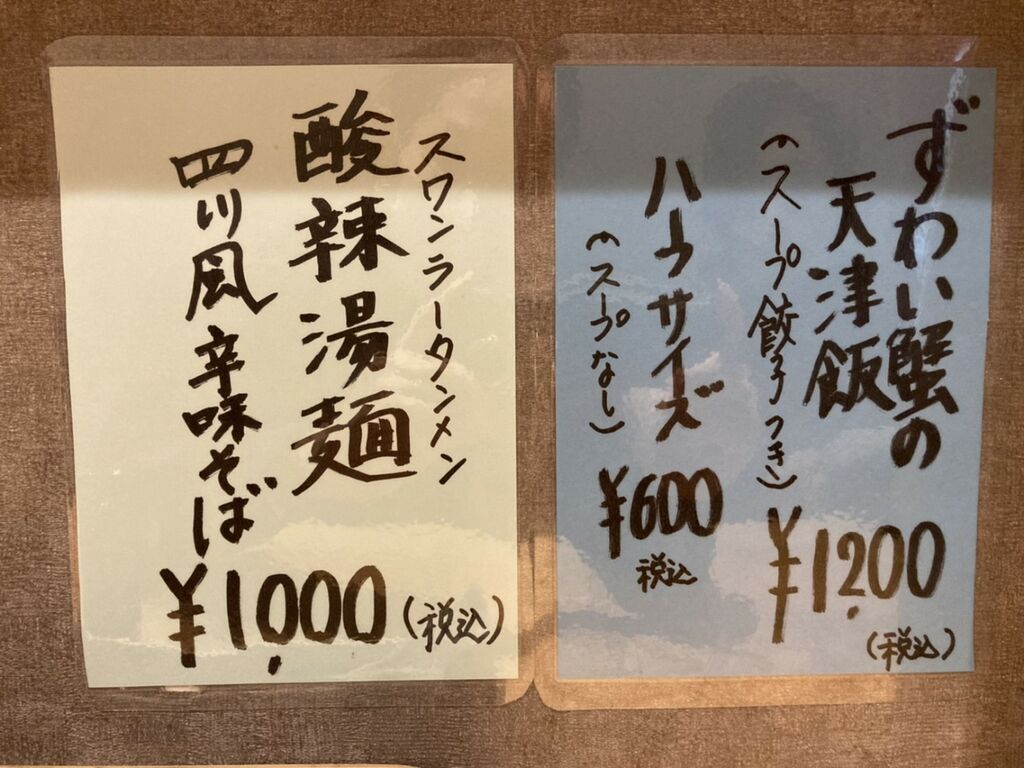 ずわい蟹の
天津飯
(スープ餃子つき)
¥1,200
(税込)
ハーフサイズ
(スープなし)
¥600
税込
スワンラータンメン
酸辣湯麺
四川風辛味そば
¥1,000
(税込)